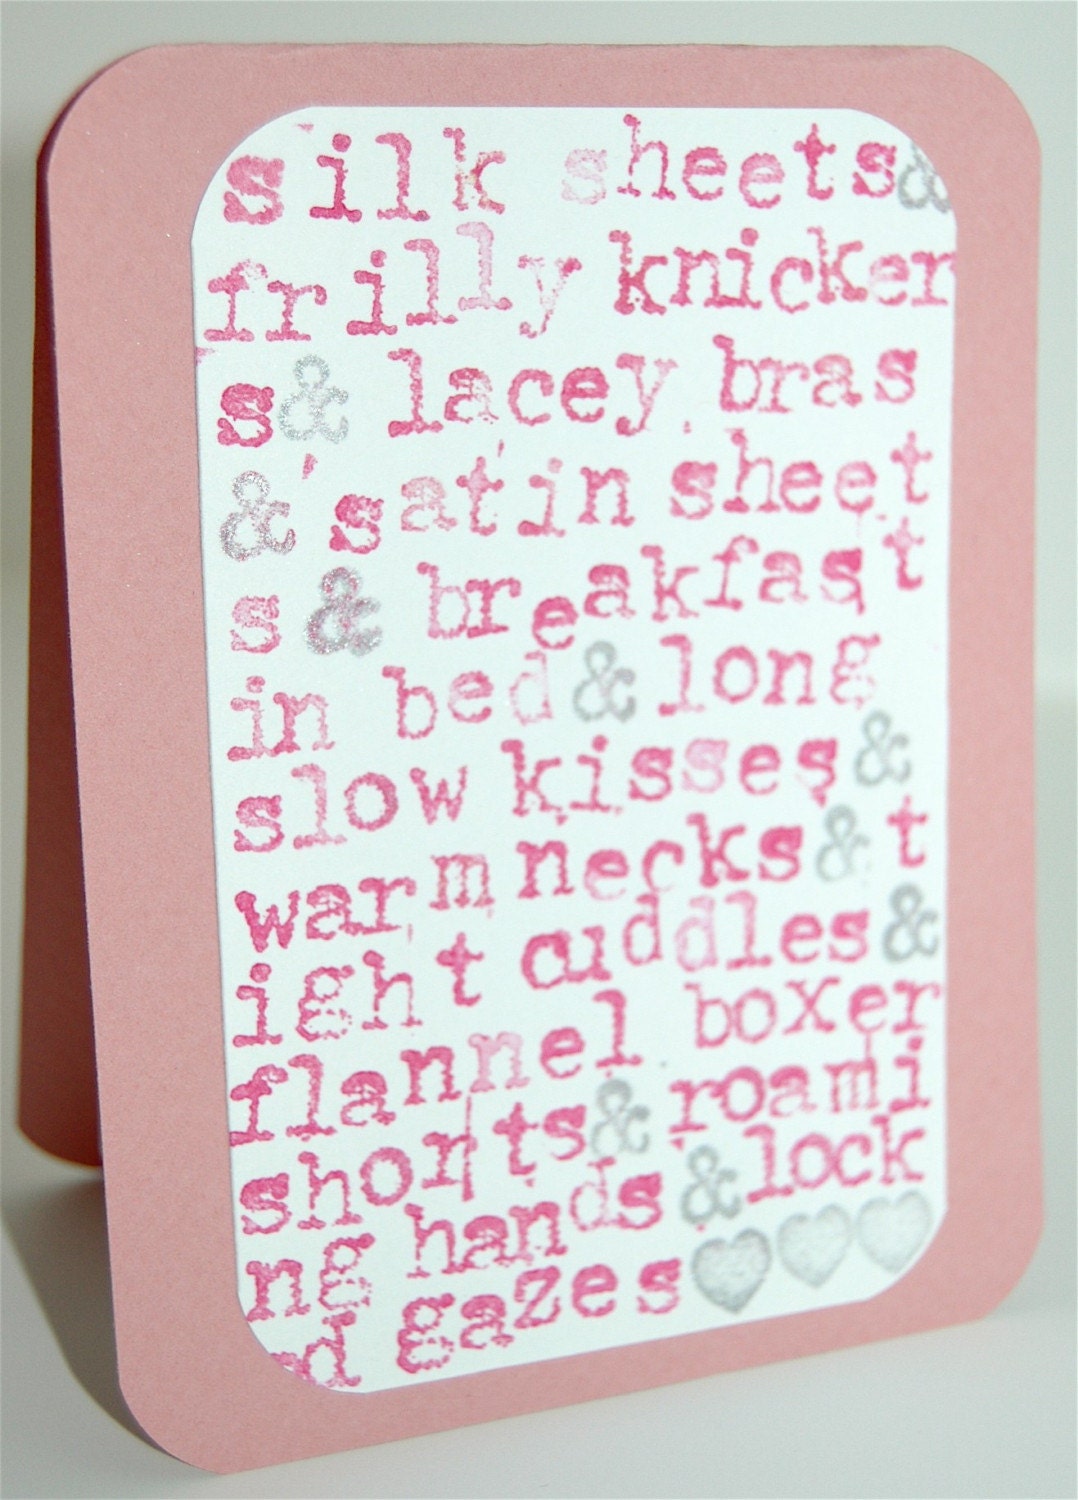 silk sheets&
frilly knicker
s& lacey bras
& satin sheet
s & breakfast
in bed & long
slow kisses &
warm necks & t
ight cuddles &
flannel boxer
shorts & roami
ng hands & lock
d gazes